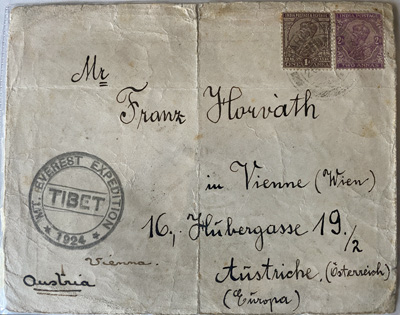 INDIA POSTAGE
Mr
Franz Horváth
in Vienne (Wien)
16., Hubergasse 19./2
Austriche. (Österreich)
(Europa)
Vienna.
Austria
★ MT. EVEREST EXPEDITION ★
TIBET
1924